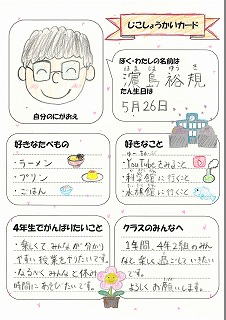 じこしょうかいカード
ぼく・わたしの名前は
はま しま ゆう き
濵島裕規
たん生日は
5月26日。
自分のにがおえ
好きなたべもの
・ラーメン
・プリン
・ごはん
好きなこと
・YouTubeをみること
・科学館に行くこと
・水族館に行くこと
4年生でがんばりたいこと
・楽しくてみんなが分かり
やすい授業をやりたいです。
・なるべくみんなと休み
時間にあそびたいです。
クラスのみんなへ
1年間、4年2組のみん
なと、楽しく過ごしていき
たいです。
よろしくお願いします。